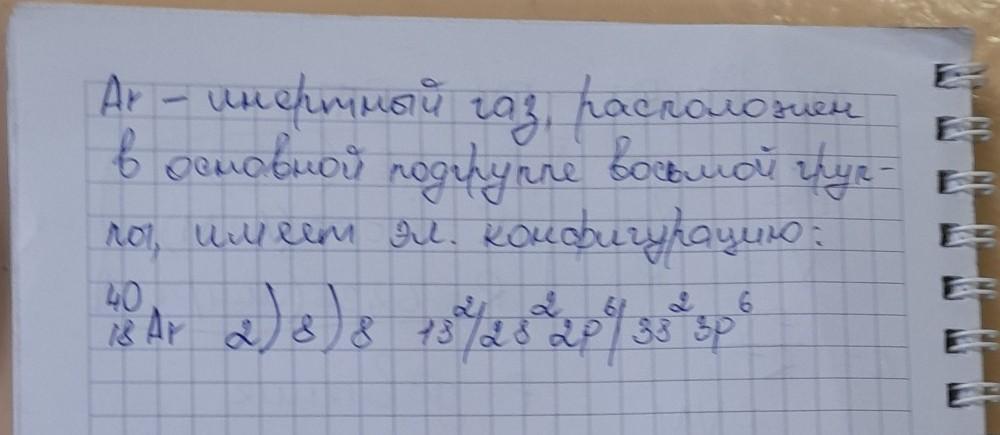 Ar – инертный газ, расположен
в основной подгруппе восьмой груп-
пы, имеет эл. конфигурацию:
⁴⁰₁₈Ar 2)8)8 1s²/2s²2p⁶/3s²3p⁶